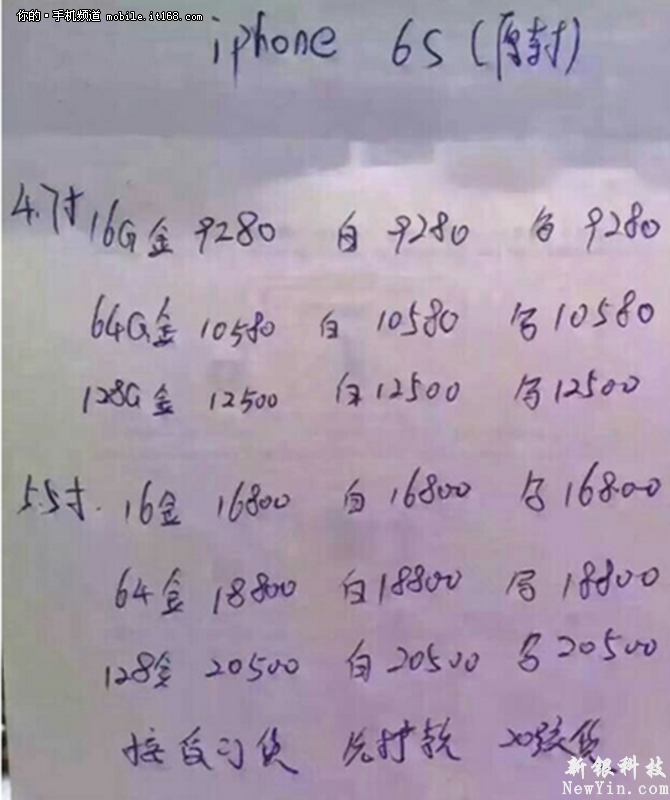 你的·手机频道 mobile.it168.com
iphone 6S (原封)
4.7寸 16G金 9280 白 9280 9280
64G金 10580 白 10580 10580
128G金 12500 白 12500 12500
5.5寸. 16金 16800 白 16800 16800
64金 18800 白 18800 18800
128金 20500 白 20500 20500
接受订货 先打款
新银科技
NewYin.com